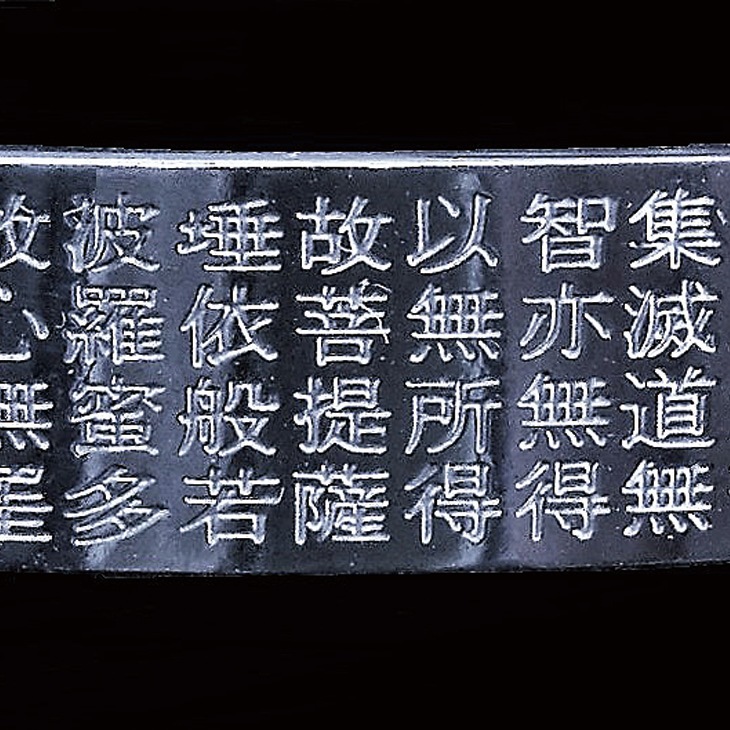 集滅道無
智亦無得
以無所得
故菩提薩
埵依般若
波羅蜜多
故心無罣